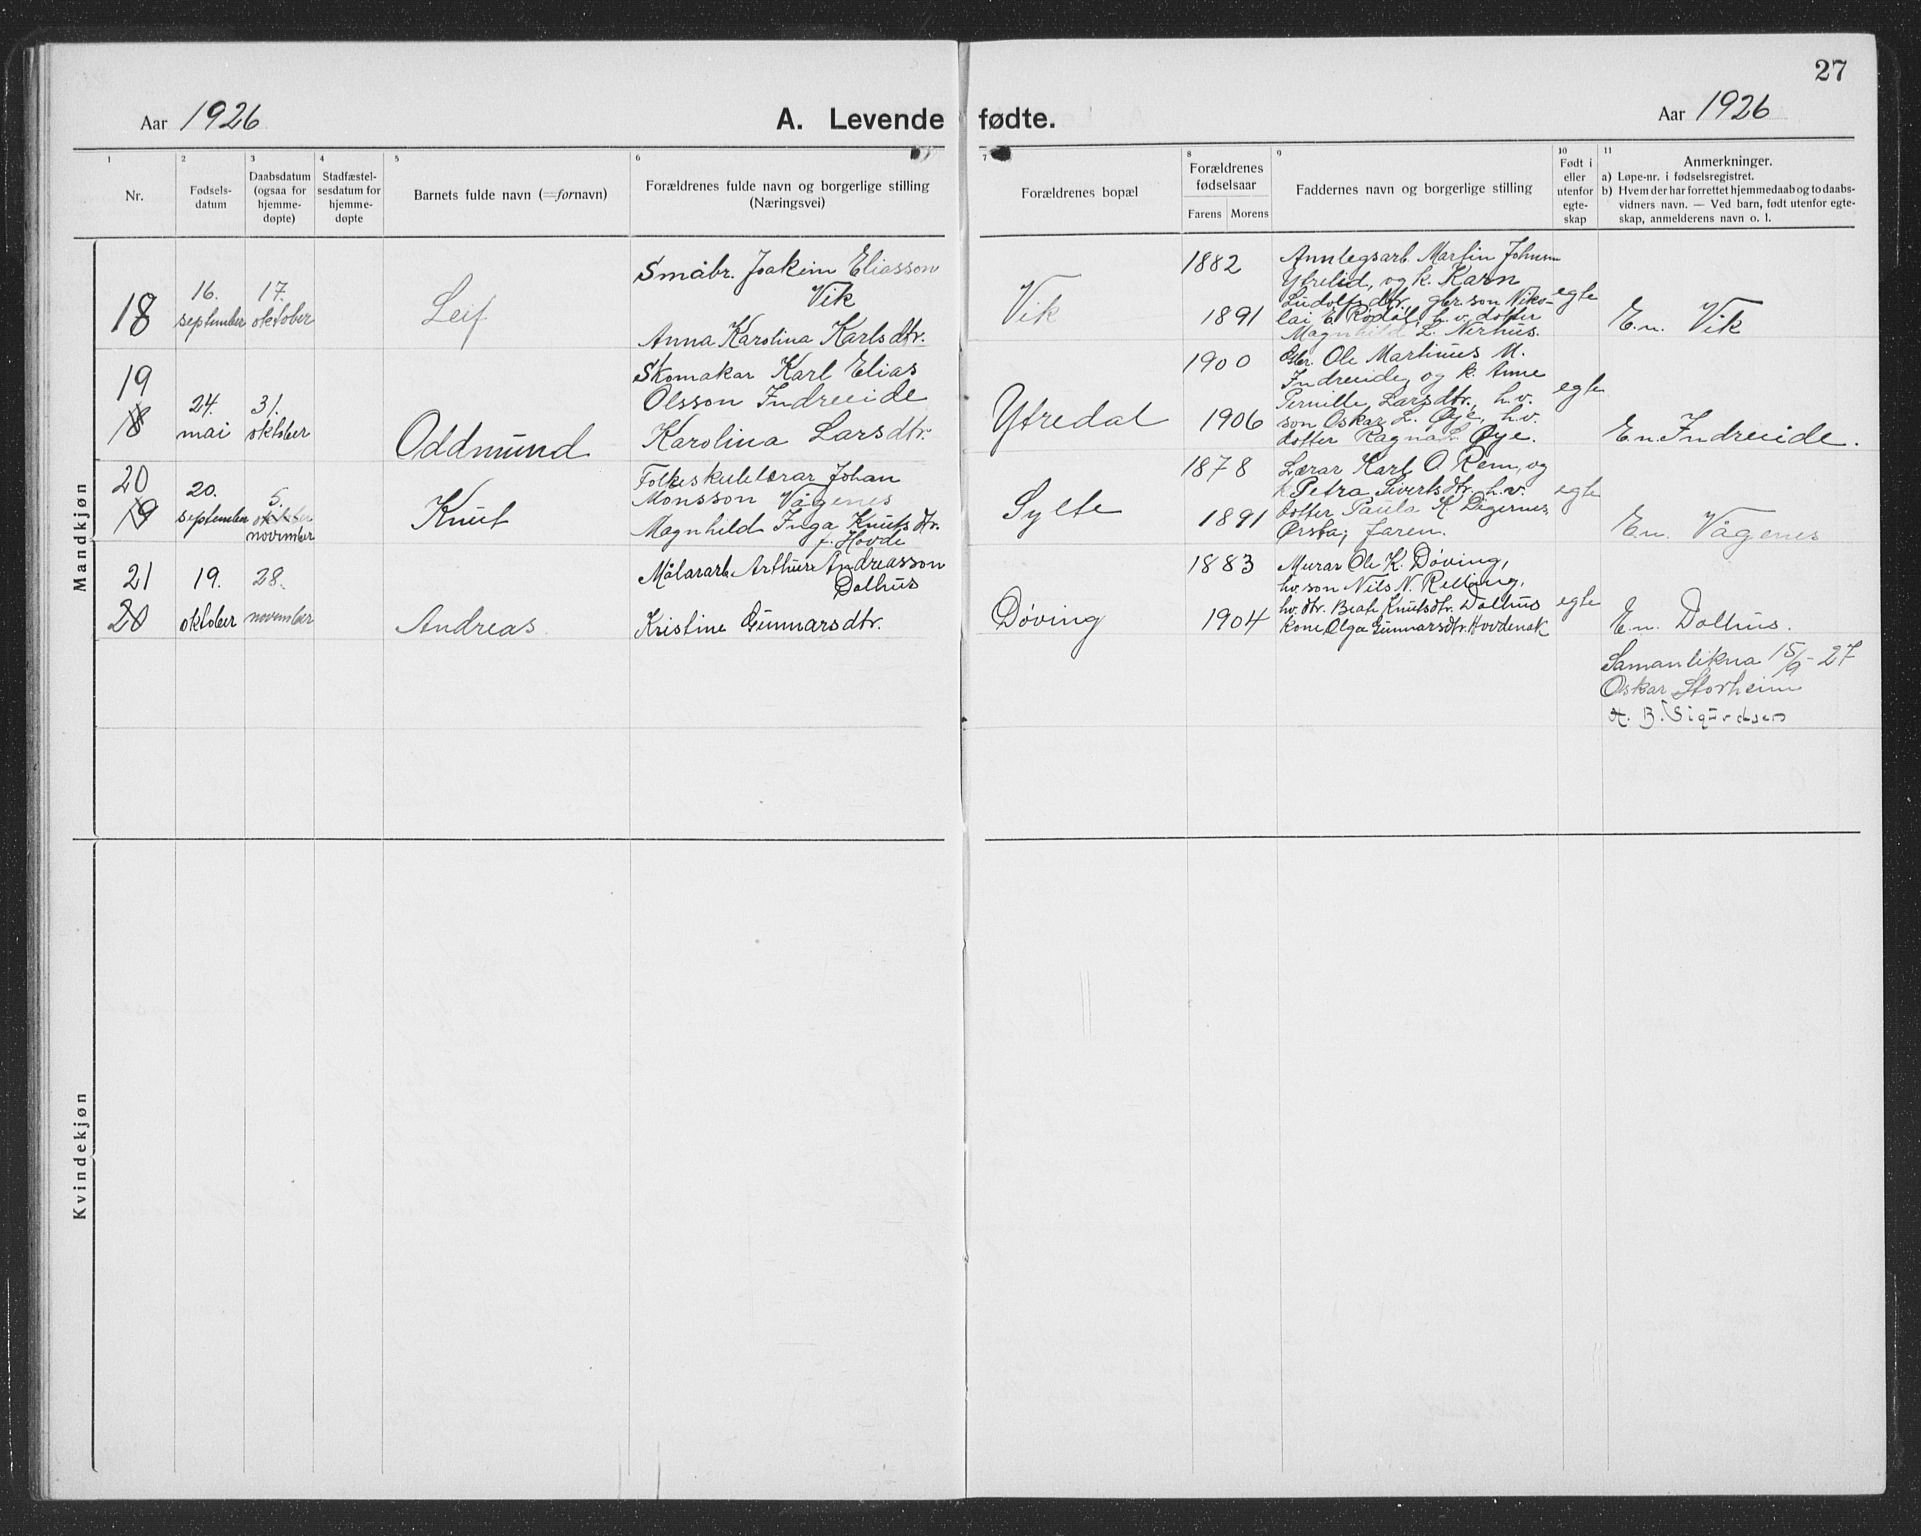 27
Aar 1926
A. Levende fødte.
Aar 1926
1 2 3 4 5 6 7 8 9 10 11
Nr.
Fødsels-
datum
Daabsdatum
(ogsaa for
hjemme-
døpte)
Stadfæstel-
sesdatum for
hjemme-
døpte
Barnets fulde navn (=fornavn)
Forældrenes fulde navn og borgerlige stilling
(Næringsvei)
Forældrenes bopæl
Forældrenes
fødselsaar
Farens Morens
Faddernes navn og borgerlige stilling
Født i
eller
utenfor
egte-
skap
Anmerkninger.
a) Løpe-nr. i fødselsregistret.
b) Hvem der har forrettet hjemmedaab og to daabs-
vidners navn. — Ved barn, født utenfor egte-
skap, anmelderens navn o. l.
Mandkjøn
18
16.
september
17.
oktober
Leif
Småbr. Joakim Eliasson
Vik
Anna Karolina Karlsdtr.
Vik
1882
1891
Annlegsarb. Martin Johnson
Ytrelid, og k. Karn
Ludolfsdtr, gbr. son Niko-
lai E. Rødøl, h.v. dotter
Magnhild L. Nerhus.
egte
E.n. Vik
19
18
24.
mai
31.
oktober
Oddmund
Skomakar Karl Elias
Olsson Indreeide
Karolina Larsdtr.
Ytredal
1900
1906
Gbr. Ole Martinus M.
Indreeide, og k. Anne
Pernille Larsdtr., h.v.
son Oskar L. Øye, h.v.
dotter Ragna L. Øye.
egte
E.n. Indreeide.
20
19
20.
september
5.
oktober
november
Knut
Folkeskulelærar Johan
Monsson Vågenes
Magnhild Inga Knutsdtr.
f. Hovde
Sylte
1878
1891
Lærar Karl O. Rem, og
k. Petra Sivertsdtr. h.v.
dotter Paula K. Digernes
Ørsta; faren.
egte
E.n. Vågenes
21
20
19.
oktober
28.
november
Andreas
Målararb. Arthur Andreasson
Dalhus
Kristine Gunnarsdtr.
Døving
1883
1904
Murar Ole K. Døving,
hv. son Nils N. Relling,
hv. dtr. Beate Knutsdtr. Dalhus
kone Olga Gunnarsdtr. Hovdenak
egte
E.n. Dalhus.
Samanlikna 15/9-27
Oskar Storheim
A. B. Sigurdsen
Kvindekjøn